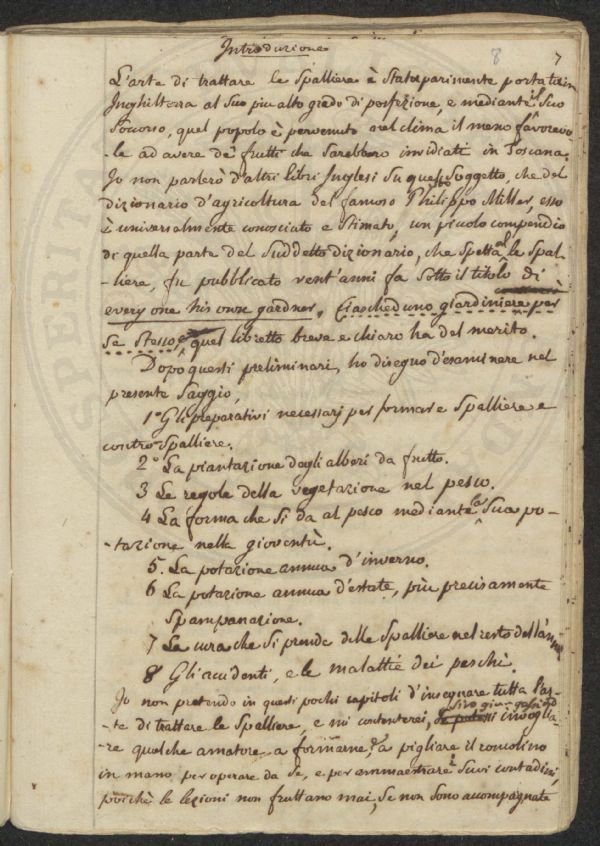 Introduzione
8 7
L'arte di trattare le Spalliere è Stata parimente portata in
Inghilterra al Suo piu alto grado di perfezione, e mediante il Suo
Soccorso, quel popolo è pervenuto nel clima il meno favorevo-
-le ad avere de' frutti che Sarebbero invidiati in Toscana.
Io non parlerò d'altri libri Inglesi Su questo Soggetto, che del
dizionario d'agricoltura del famoso Philippo Miller, esso
è universalmente conosciuto e Stimato, un piccolo compendio
di quella parte del Suddetto dizionario, che Spetta al le Spal-
liere, fu pubblicato vent'anni fa Sotto il titolo di
every one his owne gardner, Ciascheduno giardiniere per
Se Stesso, quel libretto breve e chiaro ha del merito.
Dopo questi preliminari, ho disegno d'esaminare nel
presente Saggio,
1º Gli preparativi necessarj per formare Spalliere e
contro Spalliere.
2º La piantazione degli alberi da frutto.
3 Le regole della vegetazione nel pesco.
4 La forma che Si da al pesco mediante la Sua po-
-tazione nella gioventù.
5. La potazione annua d'inverno.
6 La potazione annua d'estate, più precisamente
Spampanazione.
7 La cura che Si prende delle Spalliere nel resto dell'anno
8 Gli accidenti, e le malattie dei peschi.
Io non pretendo in questi pochi capitoli d'insegnare tutta l'ar-
-te di trattare le Spalliere, e mi contenterei, Se giungessi ad invoglia-
-re qualche amatore a formarne, e a pigliare il roncolino
in mano, per operare da Se, e per ammaestrare i Suoi contadini,
poichè le lezioni non fruttano mai, Se non Sono accompagnate